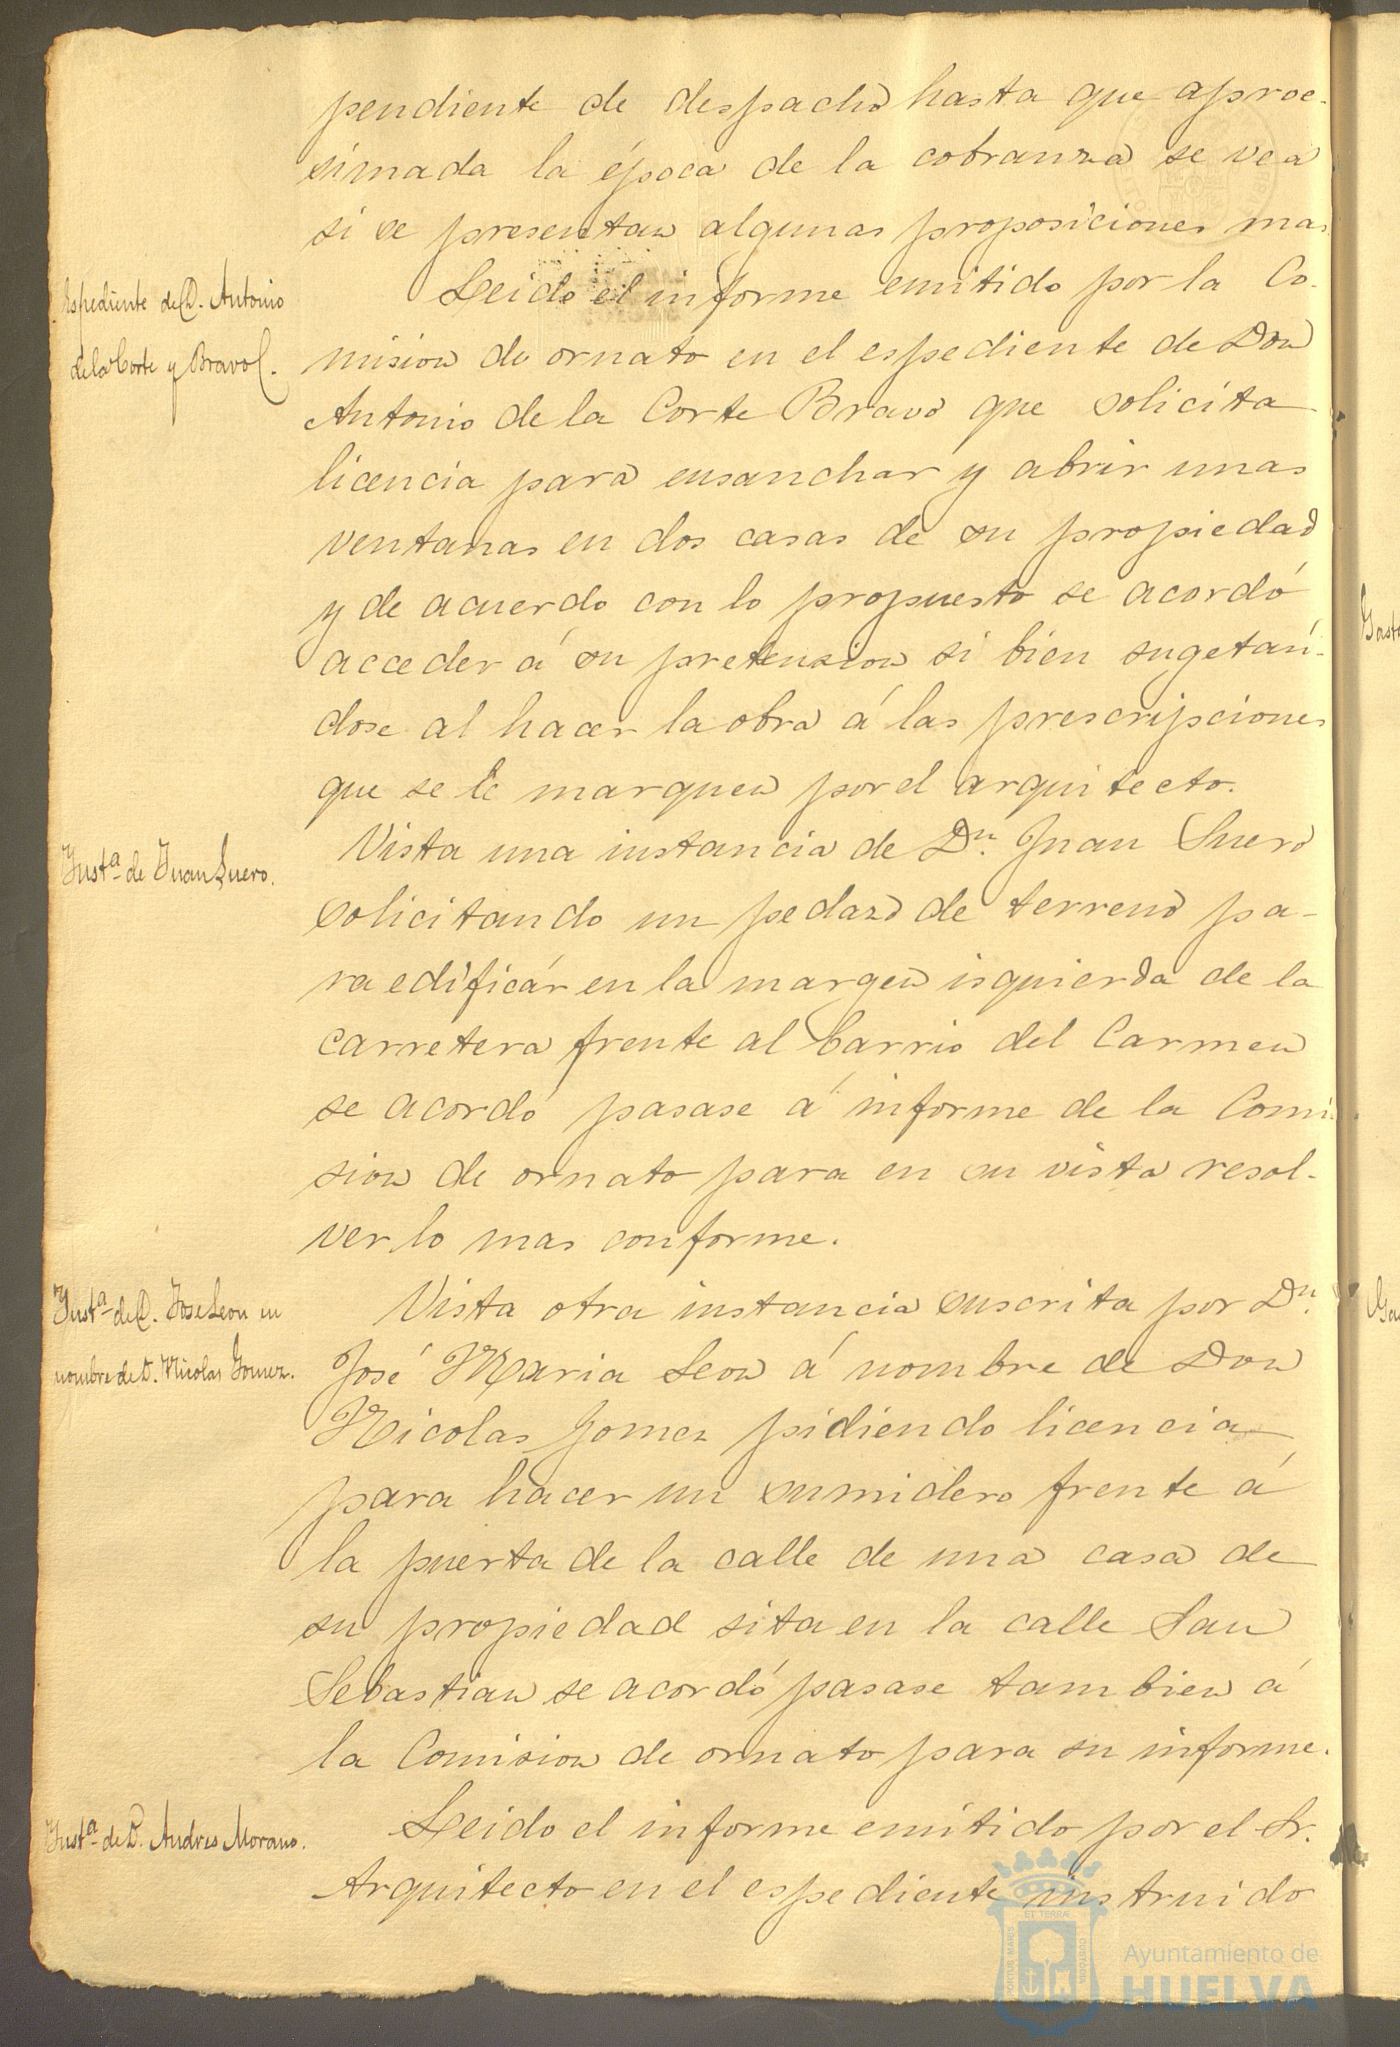 pendiente de despacho hasta que aproc-
simada la época de la cobranza se vea
si se presentan algunas proposiciones mas
Espediente de D. Antonio
de la Corte y Bravo.
Leido el informe emitido por la Co-
mision de ornato en el espediente de Don
Antonio de la Corte Bravo que solicita
licencia para ensanchar y abrir unas
ventanas en dos casas de su propiedad
y de acuerdo con lo propuesto se acordó
acceder á su pretension si bien sugetán-
dose al hacer la obra á las prescripciones
que se le marquen por el arquitecto.
Inst.ª de Juan Suero.
Vista una instancia de D.n Juan Suero
solicitando un pedazo de terreno pa-
ra edificár en la margen isquierda de la
carretera frente al barrio del Carmen
se acordó pasase á informe de la Comi-
sion de ornato para en su vista resol-
ver lo mas conforme.
Inst.ª de D. Jose Leon en
nombre de D. Nicolas Gomez.
Vista otra instancia suscrita por D.n
José Maria Leon á nombre de Don
Nicolas Gomez pidiendo licencia
para hacer un sumidero frente á
la puerta de la calle de una casa de
su propiedad sita en la calle San
Sebastian se acordó pasase tambien á
la Comision de ornato para su informe.
Inst.ª de D. Andres Morano.
Leido el informe emitido por el Sr.
Arquitecto en el espediente instruido
Ayuntamiento de
HUELVA